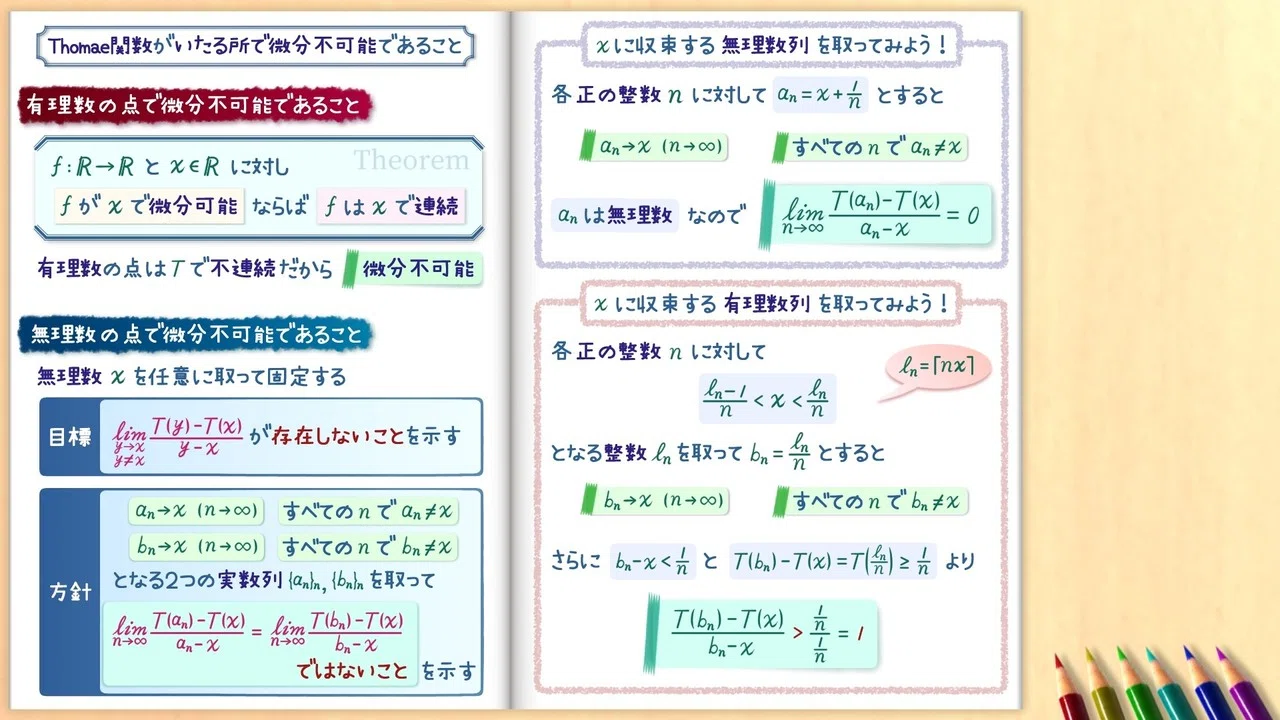 Thomae関数がいたる所で微分不可能であること
有理数の点で微分不可能であること
Theorem
f:ℝ→ℝ と x∈ℝ に対し
f が x で微分可能 ならば f は x で連続
有理数の点は T で不連続だから 微分不可能
無理数の点で微分不可能であること
無理数 x を任意に取って固定する
目標 lim_{y→x, y≠x} (T(y)-T(x))/(y-x) が存在しないことを示す
方針
aₙ→x (n→∞) すべての n で aₙ≠x
bₙ→x (n→∞) すべての n で bₙ≠x
となる2つの実数列 {aₙ}ₙ, {bₙ}ₙ を取って
lim_{n→∞} (T(aₙ)-T(x))/(aₙ-x) = lim_{n→∞} (T(bₙ)-T(x))/(bₙ-x)
ではないこと を示す
x に収束する 無理数列 を取ってみよう！
各 正の整数 n に対して aₙ=x+1/n とすると
aₙ→x (n→∞) すべての n で aₙ≠x
aₙ は無理数 なので lim_{n→∞} (T(aₙ)-T(x))/(aₙ-x) = 0
x に収束する 有理数列 を取ってみよう！
各 正の整数 n に対して
ℓₙ=⌈nx⌉
(ℓₙ-1)/n < x < ℓₙ/n
となる整数 ℓₙ を取って bₙ=ℓₙ/n とすると
bₙ→x (n→∞) すべての n で bₙ≠x
さらに bₙ-x<1/n と T(bₙ)-T(x)=T(ℓₙ/n)≥1/n より
(T(bₙ)-T(x))/(bₙ-x) > (1/n)/(1/n) = 1